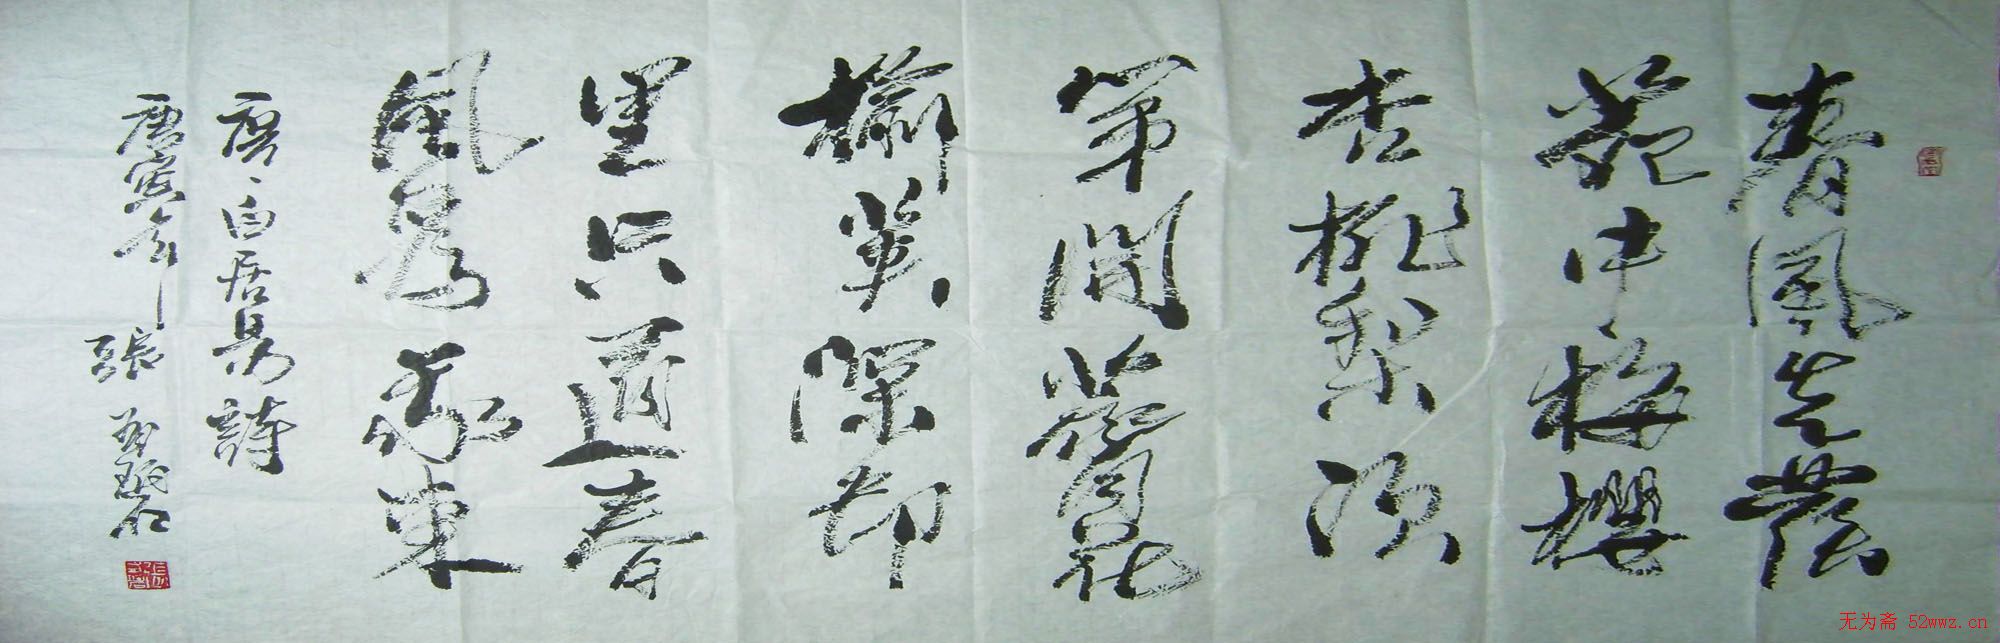 春風先發
苑中梅櫻
杏桃梨次
第開薺花
榆莢深邨
里只道春
風為我來
唐、白居易詩
庚寅年 張
无为斋 52wwz.cn